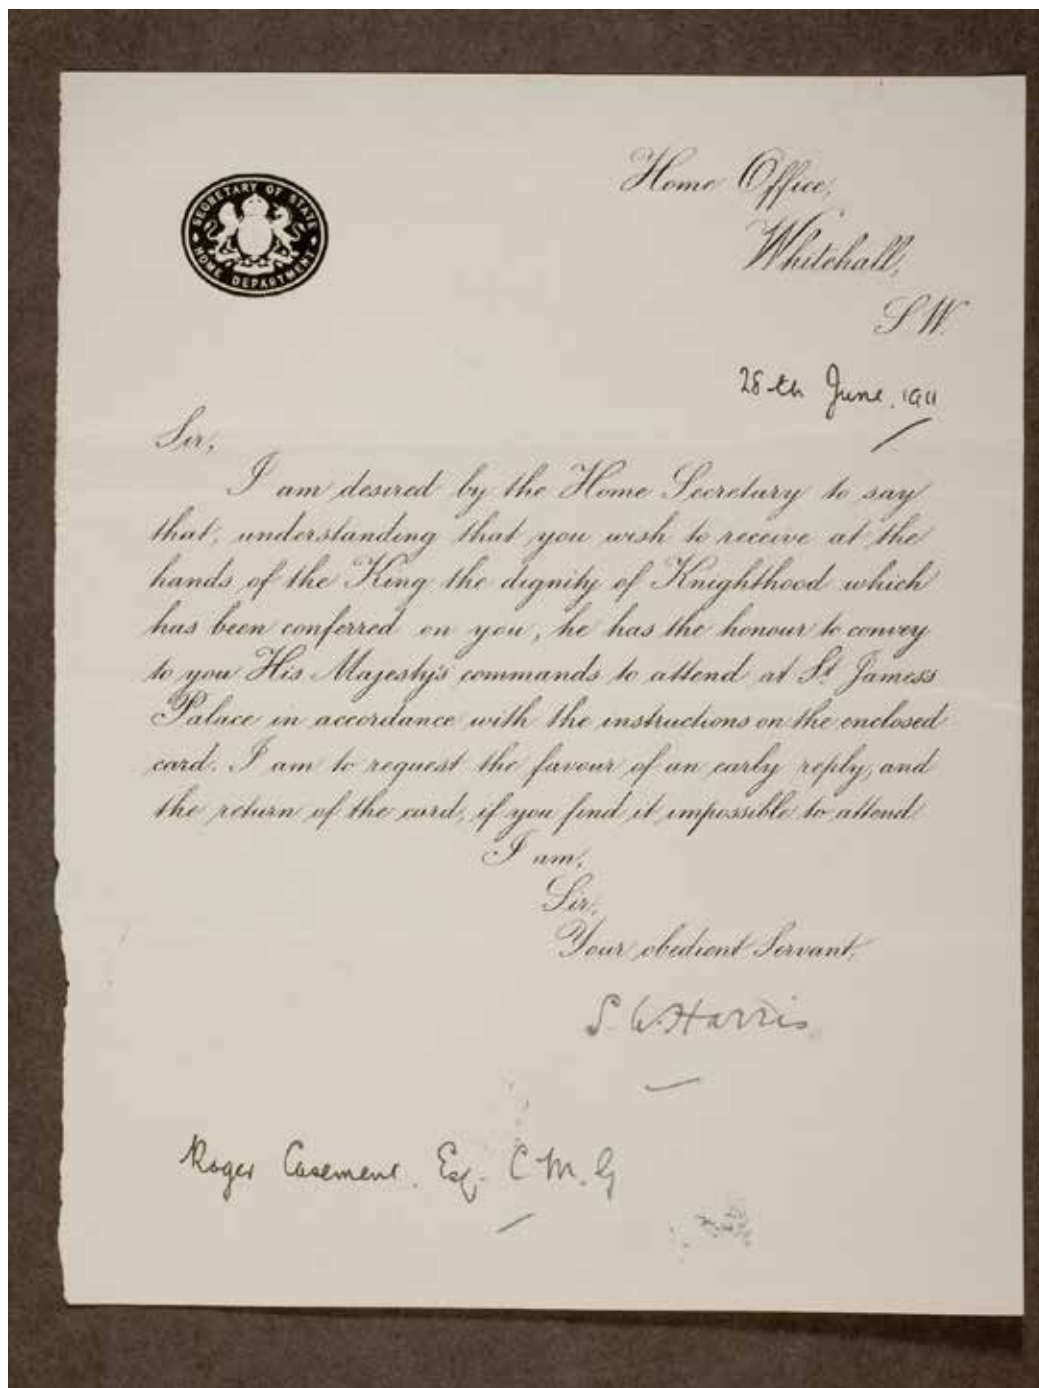 SECRETARY OF STATE
HOME DEPARTMENT
Home Office,
Whitehall,
S.W.
28th June, 1911
Sir,
I am desired by the Home Secretary to say
that, understanding that you wish to receive at the
hands of the King the dignity of Knighthood which
has been conferred on you, he has the honour to convey
to you His Majesty's commands to attend at St. James's
Palace in accordance with the instructions on the enclosed
card. I am to request the favour of an early reply, and
the return of the card, if you find it impossible to attend
I am,
Sir,
Your obedient Servant,
S. W. Harris
Roger Casement, Esq. C.M.G